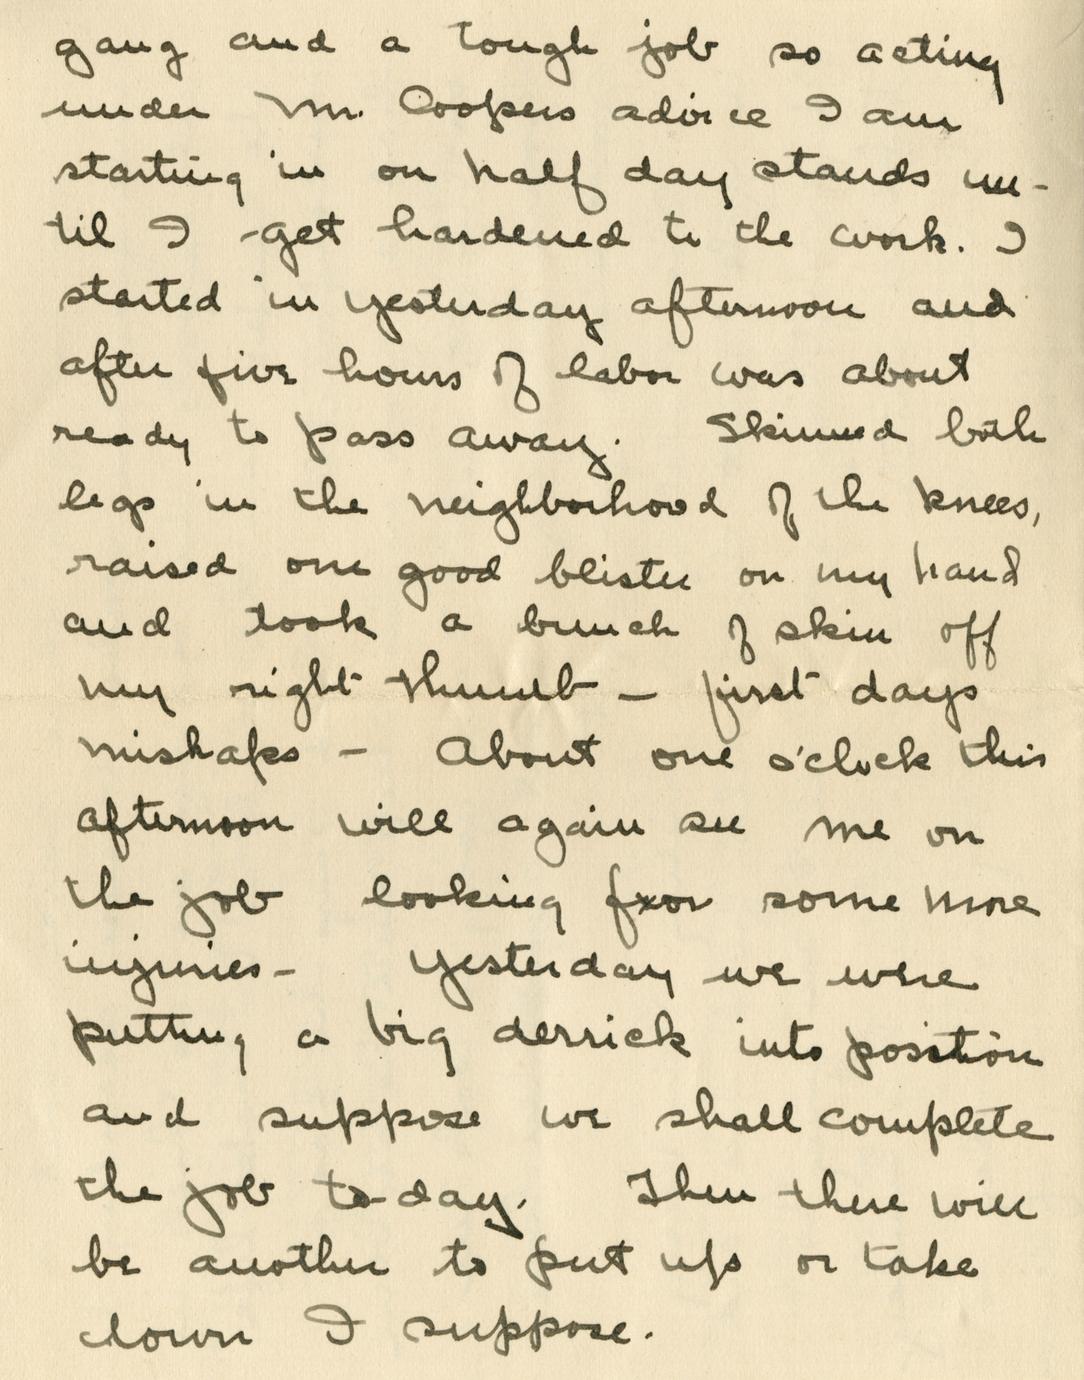 gang and a tough job so acting
under Mr. Coopers advice I am
starting in on half day stands un-
til I get hardened to the work. I
started in yesterday afternoon and
after five hours of labor was about
ready to pass away. Skinned both
legs in the neighborhood of the knees,
raised one good blister on my hand
and took a bunch of skin off
my right thumb — first days
mishaps — About one o'clock this
afternoon will again see me on
the job looking for some more
injuries — Yesterday we were
putting a big derrick into position
and suppose we shall complete
the job to-day. Then there will
be another to put up or take
down I suppose.